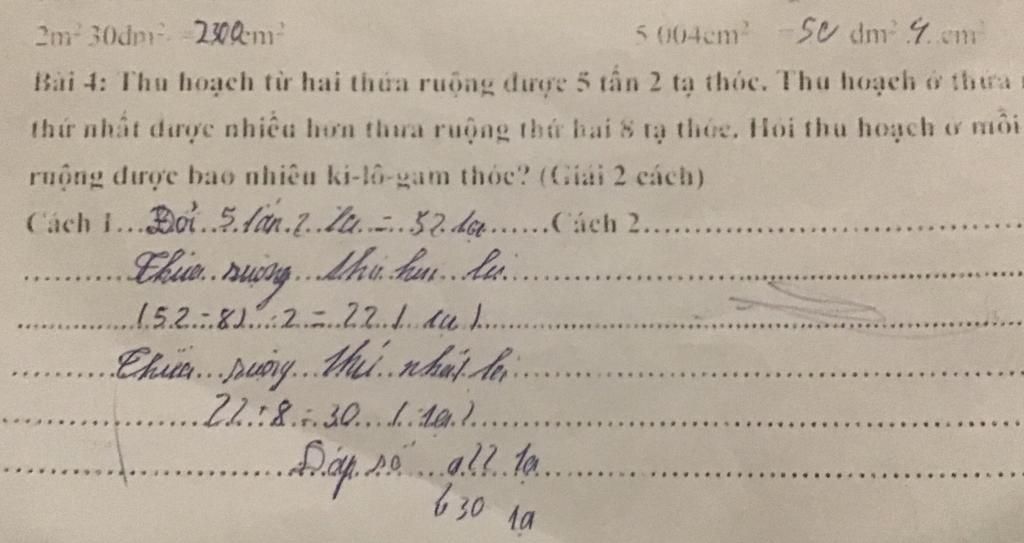 2m² 30dm² = 2300cm² 5 004cm² = 50 dm² 4 cm²
Bài 4: Thu hoạch từ hai thửa ruộng được 5 tấn 2 tạ thóc. Thu hoạch ở thửa
thứ nhất được nhiều hơn thửa ruộng thứ hai 8 tạ thóc. Hỏi thu hoạch ở mỗi
ruộng được bao nhiêu ki-lô-gam thóc? (Giải 2 cách)
Cách 1...Đổi 5 tấn 2 tạ = 52 tạ......Cách 2...
Thửa ruộng thứ hai là
(52 - 8) : 2 = 22 ( tạ )
Thửa ruộng thứ nhất là
22 + 8 = 30 ( tạ )
Đáp số a 22 tạ
b 30 tạ